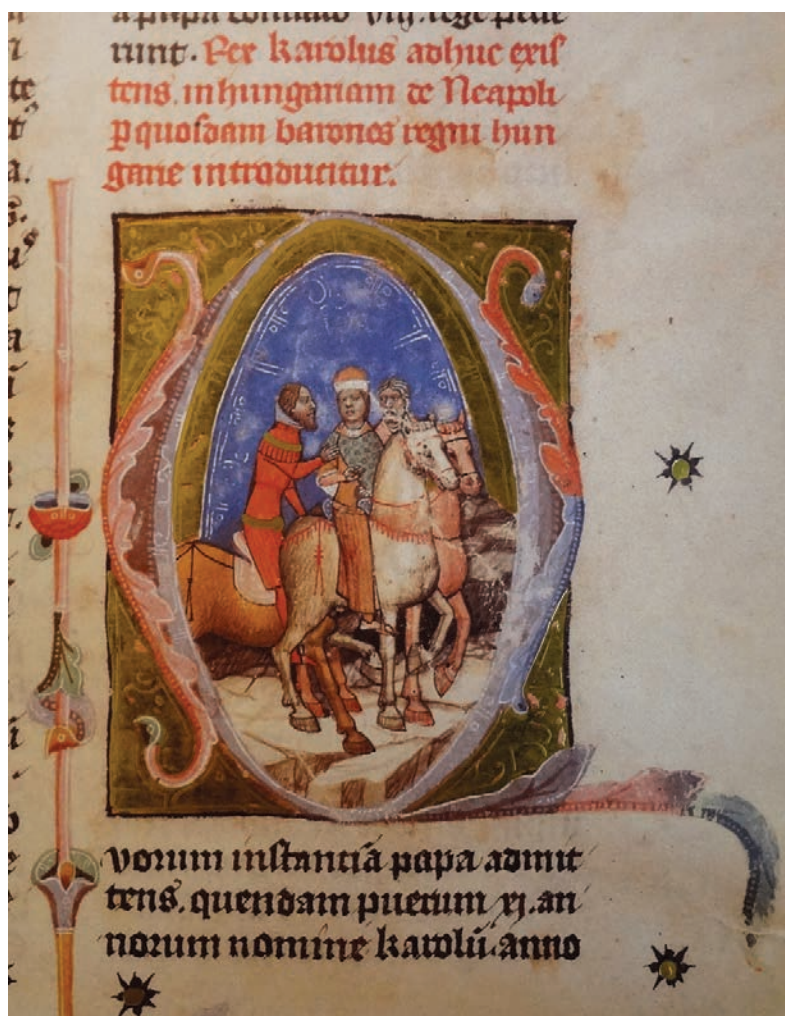 a papa
runt. Rex karolus adhuc exis
tens. in hungariam de Neapoli
p quosdam barones regni hun
garie introducitur.
vorum instantiā papa admit
tens. quendam puerum xj. an
norum nomine karolū. anno